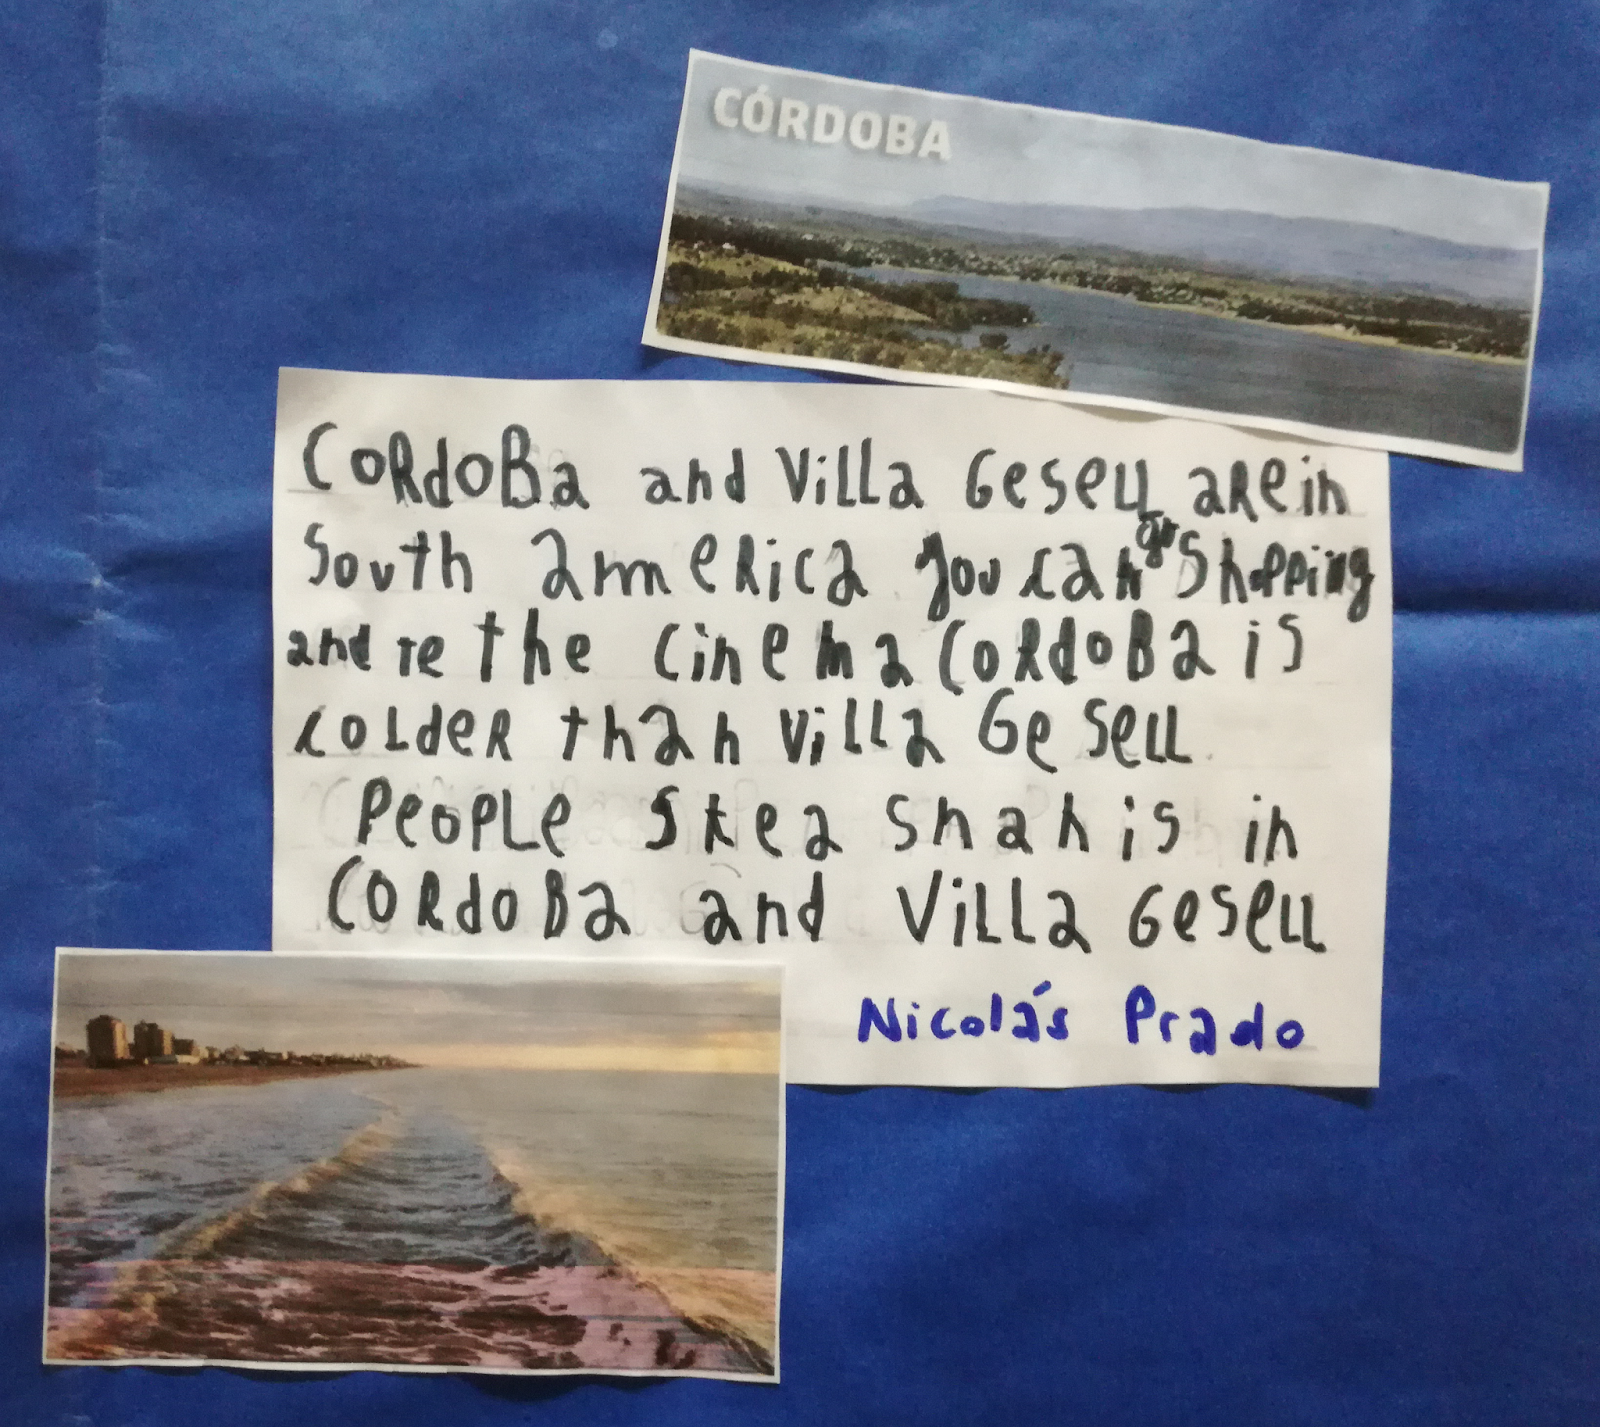 CÓRDOBA
CORdoBa and Villa Gesell are in
South america you can go Shopping
and te the cinema CORdoBa is
colder than Villa Gesell
People skea snahis in
CORdoBa and Villa Gesell
Nicolás Prado